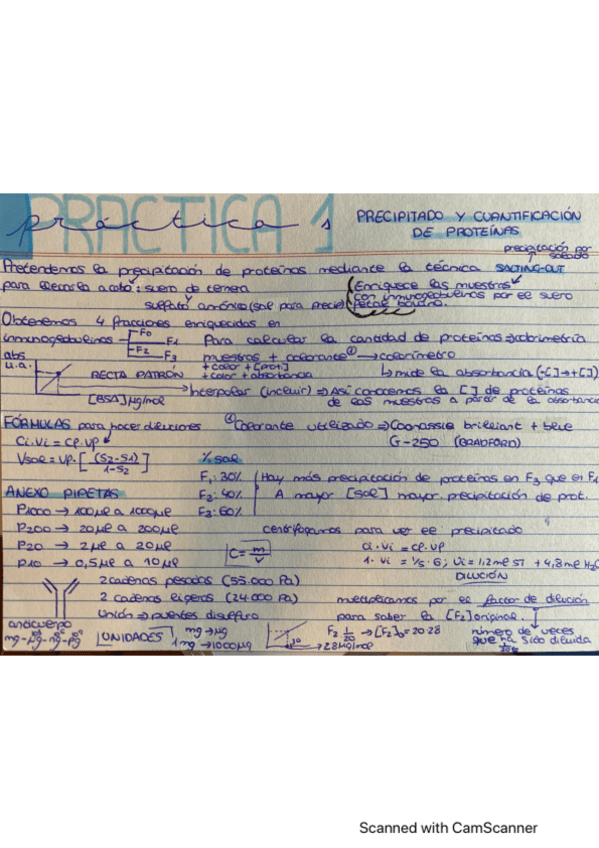 PRÁCTICA 1
práctica 1
PRECIPITADO Y CUANTIFICACIÓN
DE PROTEÍNAS
precipitación por salado
Pretendemos la precipitación de proteínas mediante la técnica SALTING-OUT
para llevarla a cabo: suero de ternera
Enriquece las muestras
con inmunoglobulinas por el suero
fetal bovino.
sulfato amónico (sal para precip)
Obtenemos 4 fracciones enriquecidas en
inmunoglobulinas F0 F1 F2 F3
Para calcular la cantidad de proteínas → colorimetría
muestras + colorante (1) → colorímetro
+ color + [prot]
+ color + absorbancia
↳ mide la absorbancia (-[ ] → +[ ])
abs
u.a.
RECTA PATRÓN
[BSA] µg/ml
Interpolar (incluir) ⇒ Así conocemos la [ ] de proteínas
de las muestras a partir de la absorbancia
FÓRMULAS para hacer diluciones
(1) Colorante utilizado ⇒ Coomassie brilliant + blue
G-250 (BRADFORD)
Ci.Vi = CF.VF
Vsal = VF.[(S2-S1)/1-S2]
% sal
F1: 30%
F2: 40%
F3: 60%
Hay más precipitación de proteínas en F3 que en F1
A mayor [sal] mayor precipitación de prot.
ANEXO PIPETAS
P1000 → 100µl a 1000µl
P200 → 20µl a 200µl
P20 → 2µl a 20µl
P10 → 0,5µl a 10µl
centrifugamos para ver el precipitado
C = m/v
Ci. Vi = CF. VF
1. Vi = 1/5. 6; Vi = 1,2ml ST + 4,8ml H2O
DILUCIÓN
2 cadenas pesadas (55.000 Da)
2 cadenas ligeras (24.000 Da)
Unión ⇒ puentes disulfuro
anticuerpo
multiplicamos por el factor de dilución
para saber la [F2] original.
número de veces
que ha sido diluida
mg - µg - ng - pg
UNIDADES
mg → µg
1mg → 1000µg
F2 1/20 → [F2]0 = 20·28
→ 28µg/ml
Scanned with CamScanner